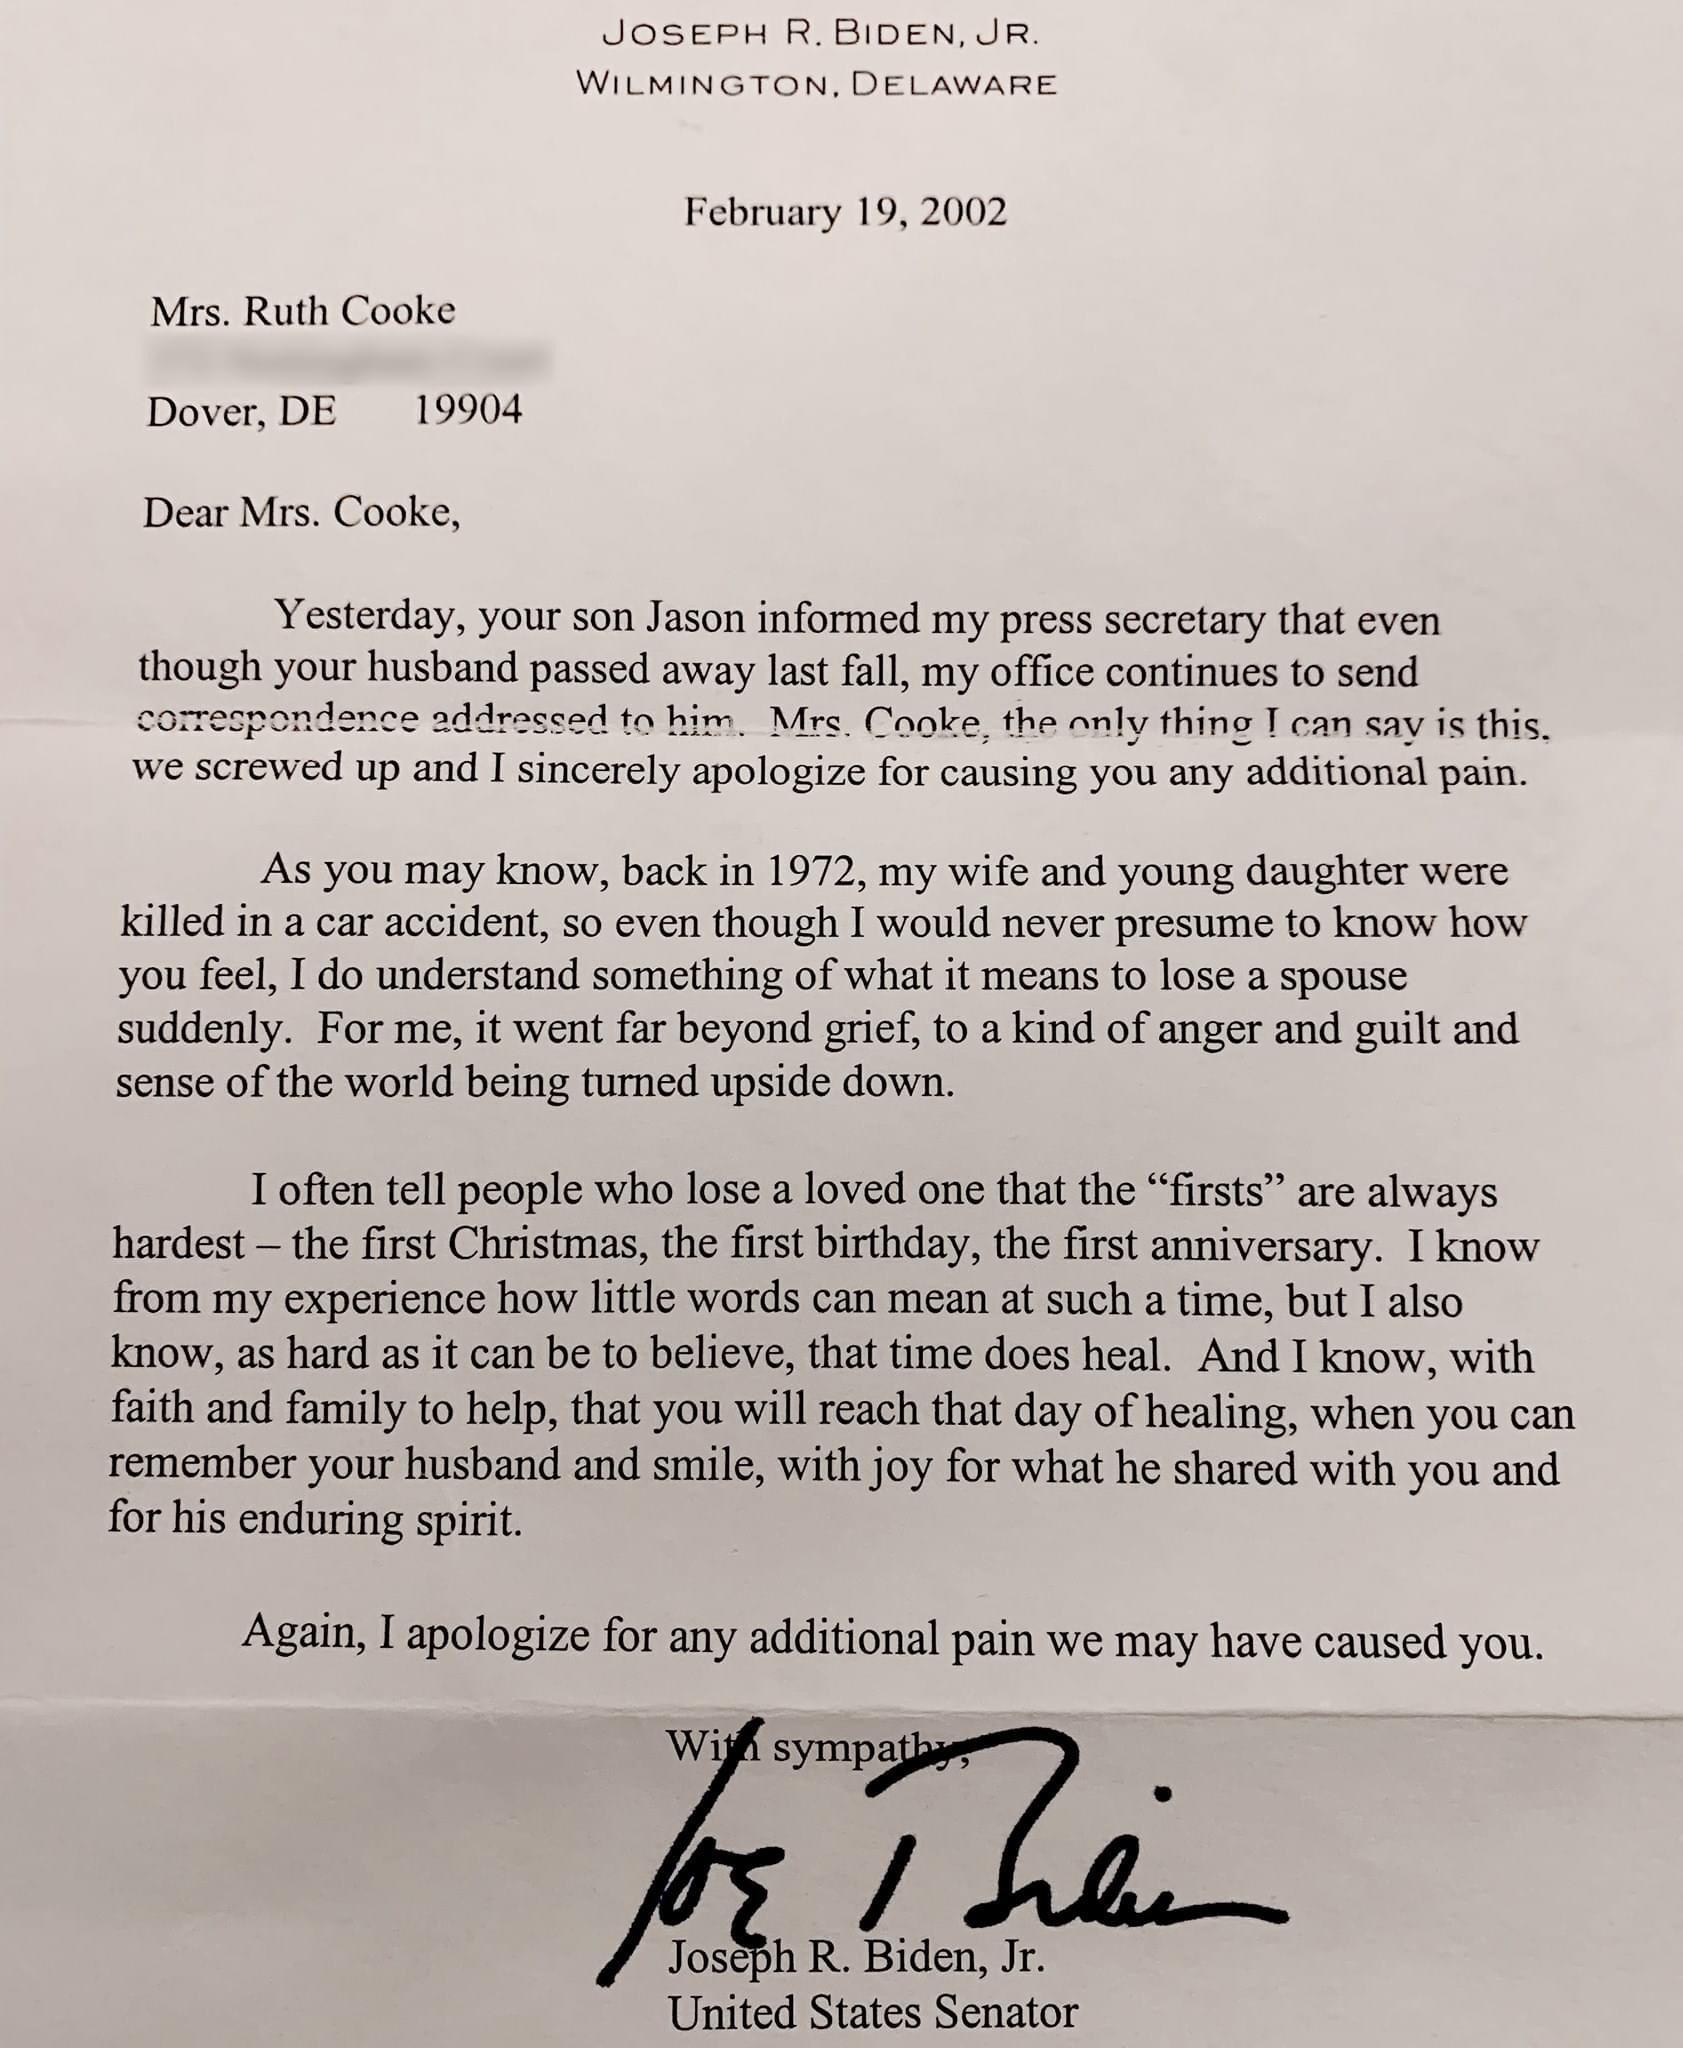 JOSEPH R. BIDEN, JR.
WILMINGTON, DELAWARE
February 19, 2002
Mrs. Ruth Cooke
Dover, DE 19904
Dear Mrs. Cooke,
Yesterday, your son Jason informed my press secretary that even
though your husband passed away last fall, my office continues to send
correspondence addressed to him. Mrs. Cooke, the only thing I can say is this,
we screwed up and I sincerely apologize for causing you any additional pain.
As you may know, back in 1972, my wife and young daughter were
killed in a car accident, so even though I would never presume to know how
you feel, I do understand something of what it means to lose a spouse
suddenly. For me, it went far beyond grief, to a kind of anger and guilt and
sense of the world being turned upside down.
I often tell people who lose a loved one that the “firsts” are always
hardest – the first Christmas, the first birthday, the first anniversary. I know
from my experience how little words can mean at such a time, but I also
know, as hard as it can be to believe, that time does heal. And I know, with
faith and family to help, that you will reach that day of healing, when you can
remember your husband and smile, with joy for what he shared with you and
for his enduring spirit.
Again, I apologize for any additional pain we may have caused you.
With sympathy,
Joe Biden
Joseph R. Biden, Jr.
United States Senator